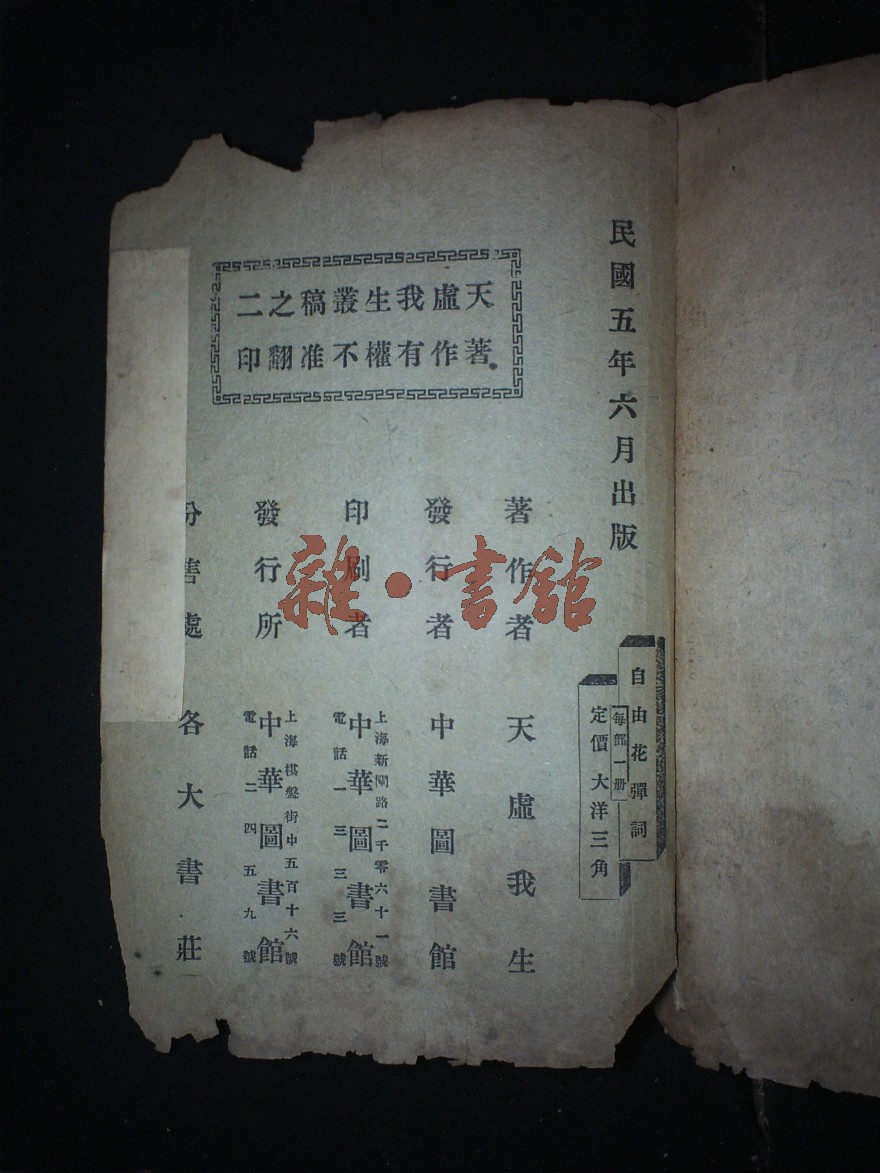 民國五年六月出版
自由花彈詞
每部一册
定價大洋三角
天虛我生叢稿之二
著作有權不准翻印
著作者 天虛我生
發行者 中華圖書館
印刷者 上海新閘路二千零六十一號
中華圖書館
電話一三三三號
發行所 上海棋盤街中五百十六號
中華圖書館
電話二四五九號
分售處 各大書莊
雜·書館